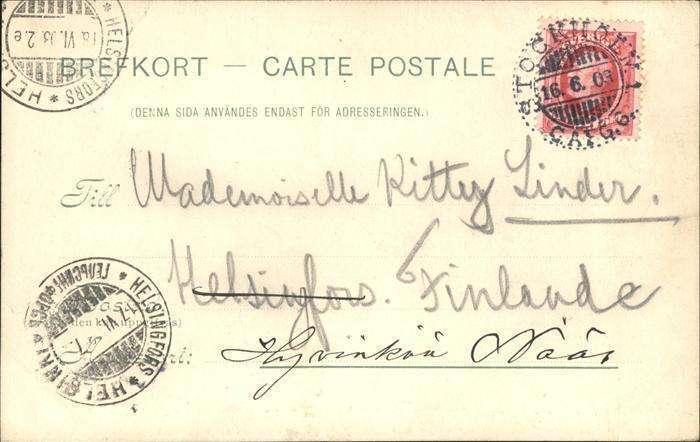 HELSINGFORS * HELS
VI. 03 2.e
BREFKORT — CARTE POSTALE
STOCKHOLM 1
16. 6. 03
(DENNA SIDA ANVÄNDES ENDAST FÖR ADRESSERINGEN.)
Till Mademoiselle Kitty Linder.
Helsingfors. Finlande
HELSINGFORS * HELSINKI * ГЕЛЬСИНГФОРСЪ
Hyvinkää Nääs